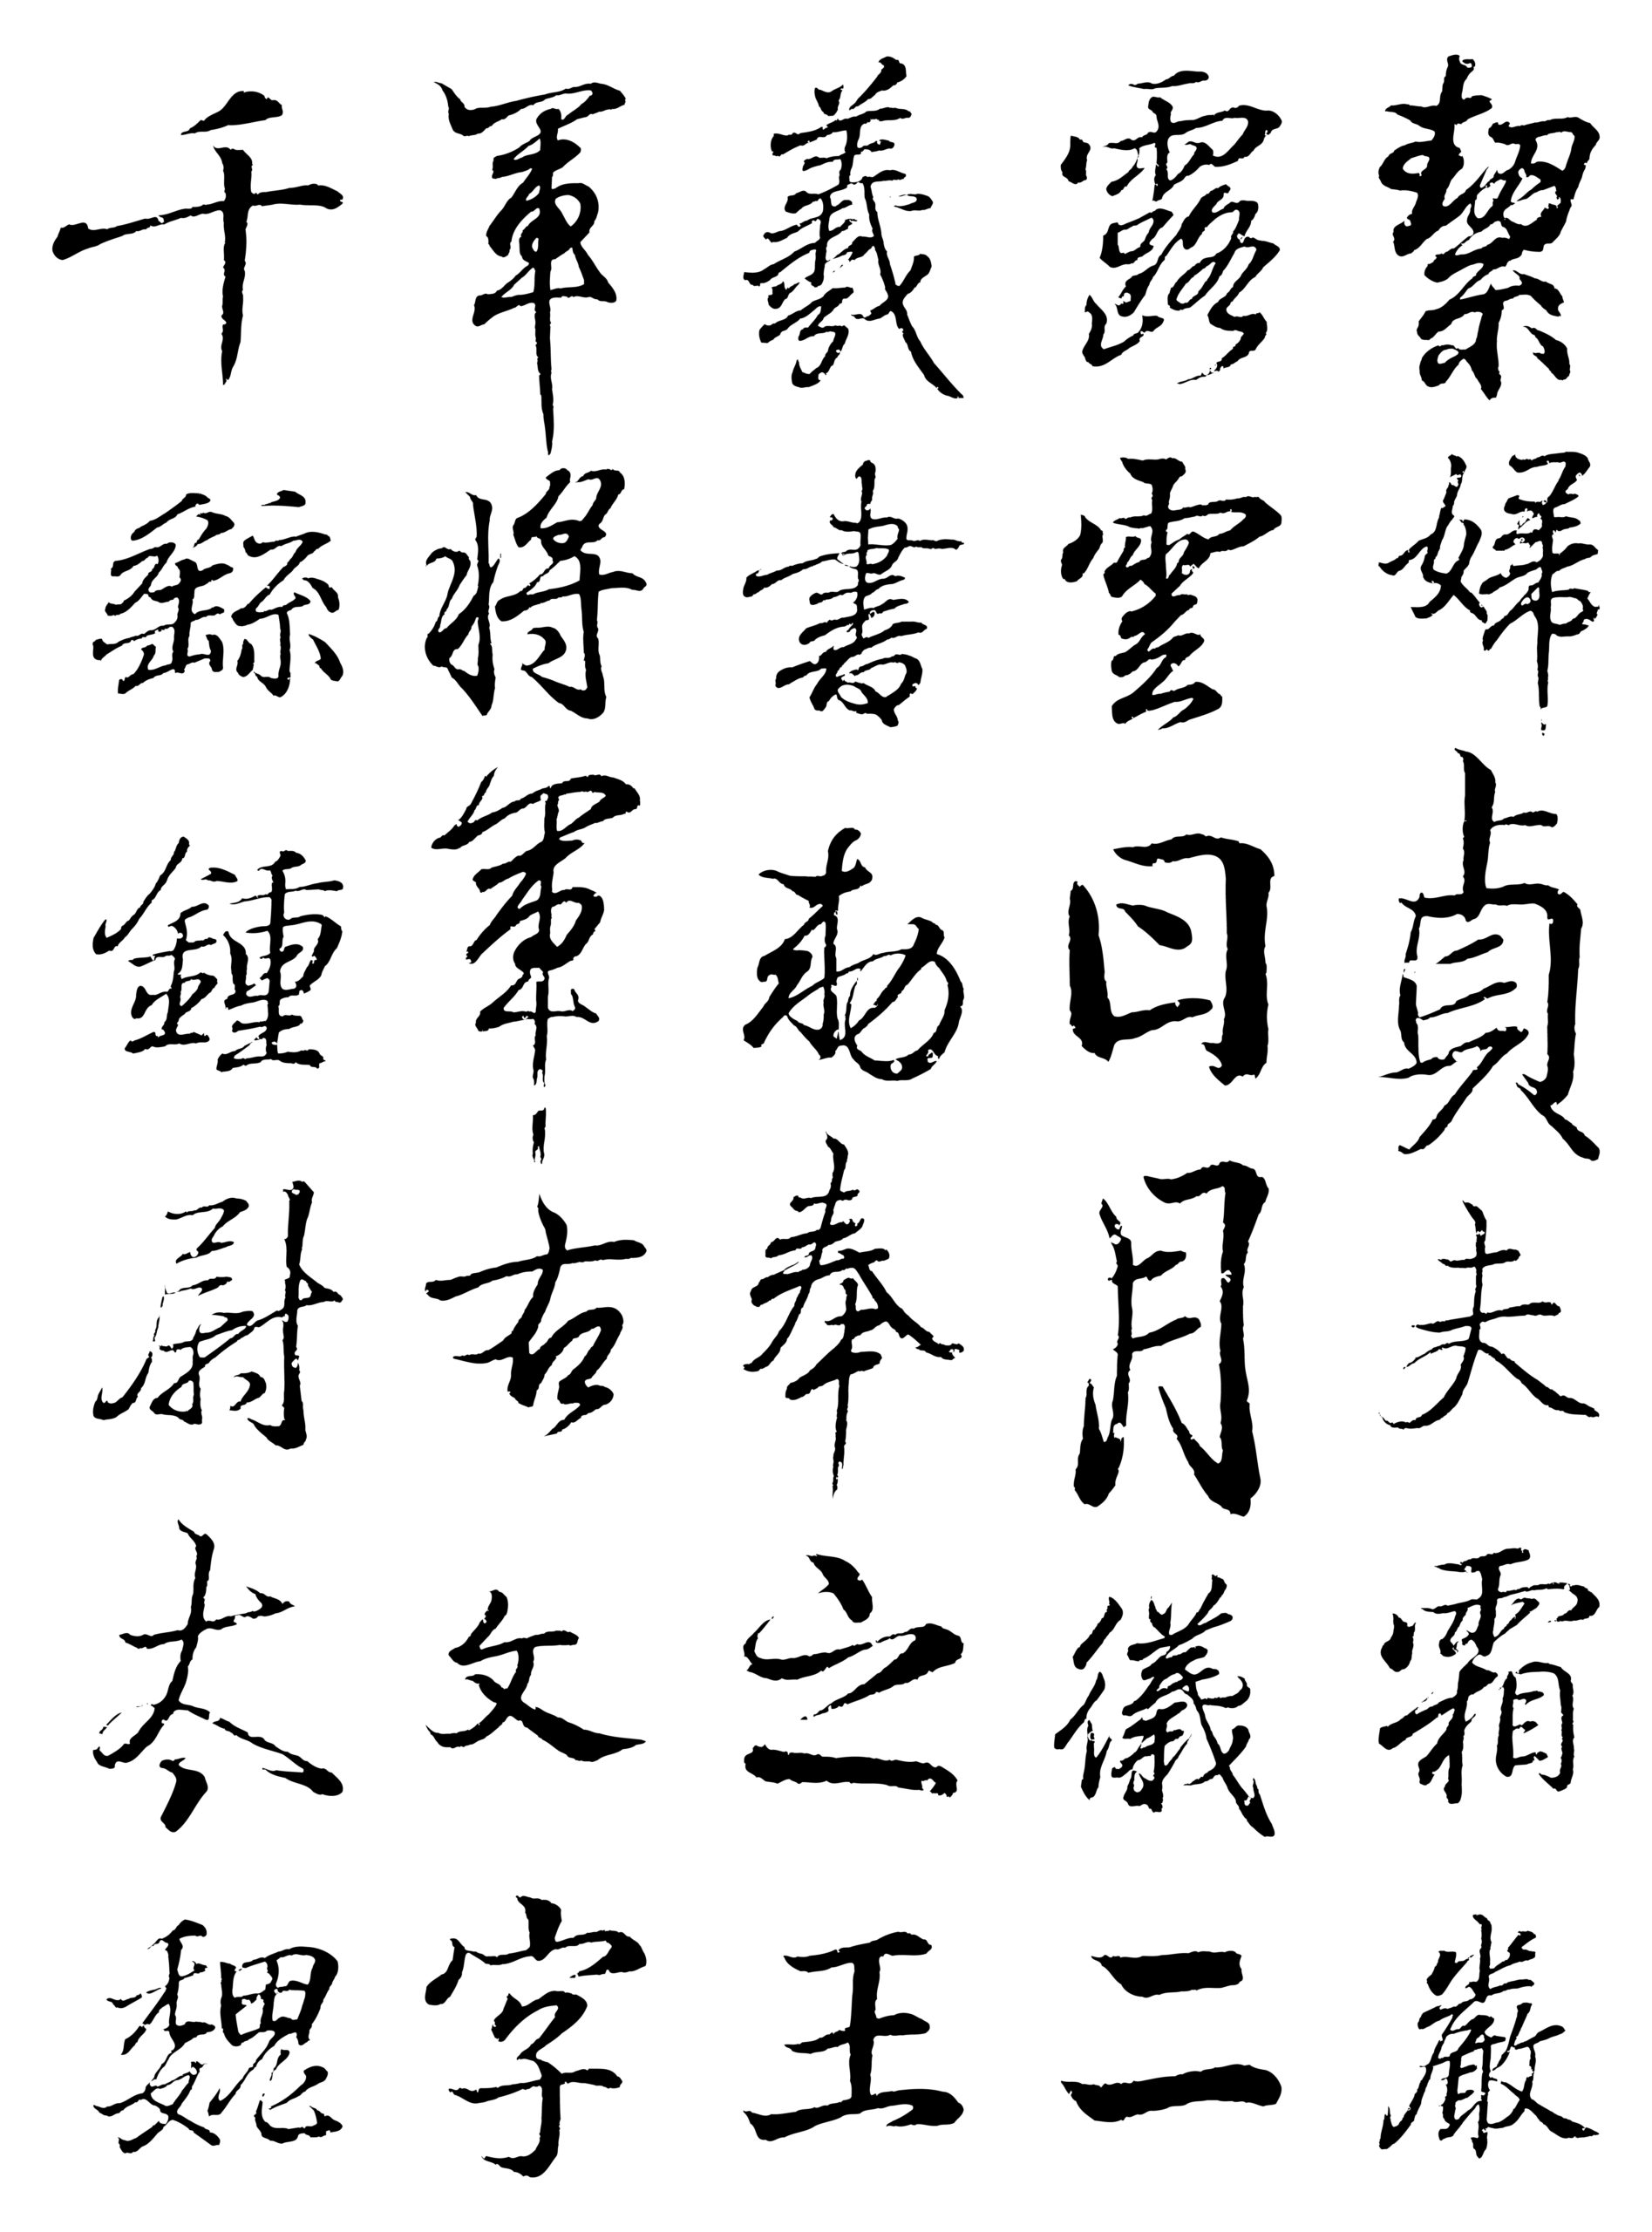 絜婦貞夫霜嚴
露雲日月儀二
羲書勑奉之王
軍將軍右文字
千繇鍾尉太魏